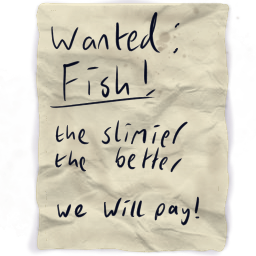 Wanted:
Fish!
the slimier
the better
we will pay!